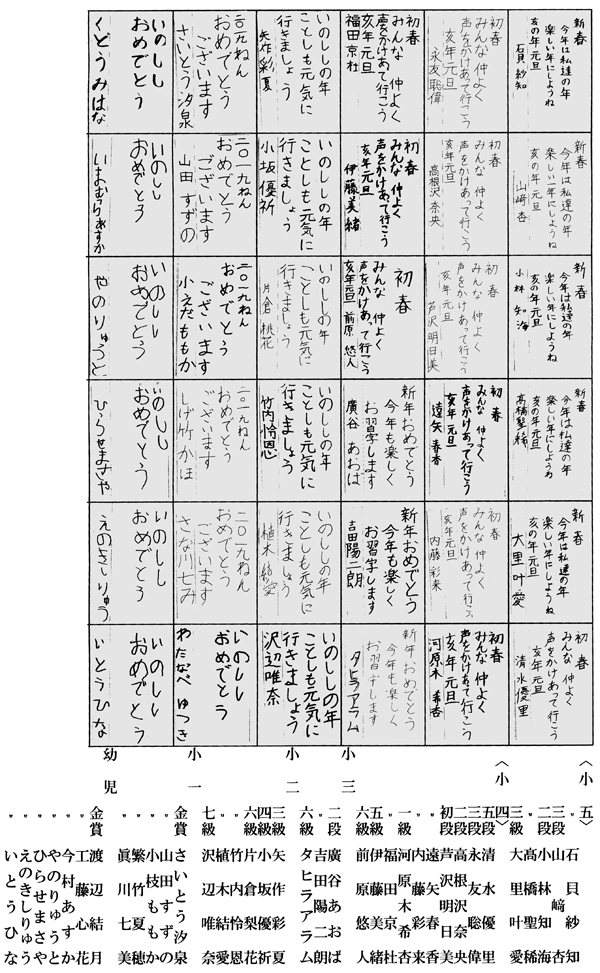 新春
今年は私達の年
楽しい年にしようね
亥の年元旦
石貝紗知
新春
今年は私達の年
楽しい年にしようね
亥の年元旦
山﨑杏
新春
今年は私達の年
楽しい年にしようね
亥の年元旦
小林知海
新春
今年は私達の年
楽しい年にしようね
亥の年元旦
髙橋聖稀
新春
今年は私達の年
楽しい年にしようね
亥の年元旦
大里叶愛
初春
みんな仲よく
声をかけあって行こう
亥年元旦
清水優里
初春
みんな仲よく
声をかけあって行こう
亥年元旦
永友聡偉
初春
みんな仲よく
声をかけあって行こう
亥年元旦
高根沢奈央
初春
みんな仲よく
声をかけあって行こう
亥年元旦
芦沢明日美
初春
みんな仲よく
声をかけあって行こう
亥年元旦
遠矢春香
初春
みんな仲よく
声をかけあって行こう
亥年元旦
内藤彩来
初春
みんな仲よく
声をかけあって行こう
亥年元旦
河原木希杏
初春
みんな仲よく
声をかけあって行こう
亥年元旦
福田京杜
初春
みんな仲よく
声をかけあって行こう
亥年元旦
伊藤美緒
初春
みんな仲よく
声をかけあって行こう
亥年元旦 前原悠人
新年おめでとう
今年も楽しく
お習字します
廣谷あおば
新年おめでとう
今年も楽しく
お習字します
吉田陽二朗
新年おめでとう
今年も楽しく
お習字します
タヒラアラム
いのししの年
ことしも元気に
行きましょう
矢作彩夏
いのししの年
ことしも元気に
行きましょう
小坂優祈
いのししの年
ことしも元気に
行きましょう
片倉桃花
いのししの年
ことしも元気に
行きましょう
竹内怜恩
いのししの年
ことしも元気に
行きましょう
植木結愛
いのししの年
ことしも元気に
行きましょう
沢辺唯奈
二〇一九ねん
おめでとう
ございます
さいとう汐泉
二〇一九ねん
おめでとう
ございます
山田すずの
二〇一九ねん
おめでとう
ございます
小えだももか
二〇一九ねん
おめでとう
ございます
しげ竹かほ
二〇一九ねん
おめでとう
ございます
さな川七み
いのしし
おめでとう
わたなべゆづき
いのしし
おめでとう
くどうみはな
いのしし
おめでとう
いまむらあすか
いのしし
おめでとう
やのりゅうと
いのしし
おめでとう
ひらせまさや
いのしし
おめでとう
えのきしりゅう
いのしし
おめでとう
いとうひな
〈小五〉
三段 石貝紗知
〃 山﨑杏
二段 小林知海
〃 髙橋聖稀
三級 大里叶愛
〈小四〉
五段 清水優里
三段 永友聡偉
二段 高根沢奈央
初段 芦沢明日美
〃 遠矢春香
〃 内藤彩来
一級 河原木希杏
小三
〃 福田京杜
五級 伊藤美緒
六級 前原悠人
二段 廣谷あおば
〃 吉田陽二朗
六級 タヒラアラム
小二
三級 矢作彩夏
四級 小坂優祈
六級 片倉梨花
〃 竹内怜恩
〃 植木結愛
七級 沢辺唯奈
小一
金賞 さいとう汐泉
〃 山田すずの
〃 小枝ももか
〃 繁竹夏穂
〃 眞川七美
幼児
金賞 渡辺結月
〃 工藤心花
〃 今村あすか
〃 やのりゅうと
〃 ひらせまさや
〃 えのきしりゅう
〃 いとうひな